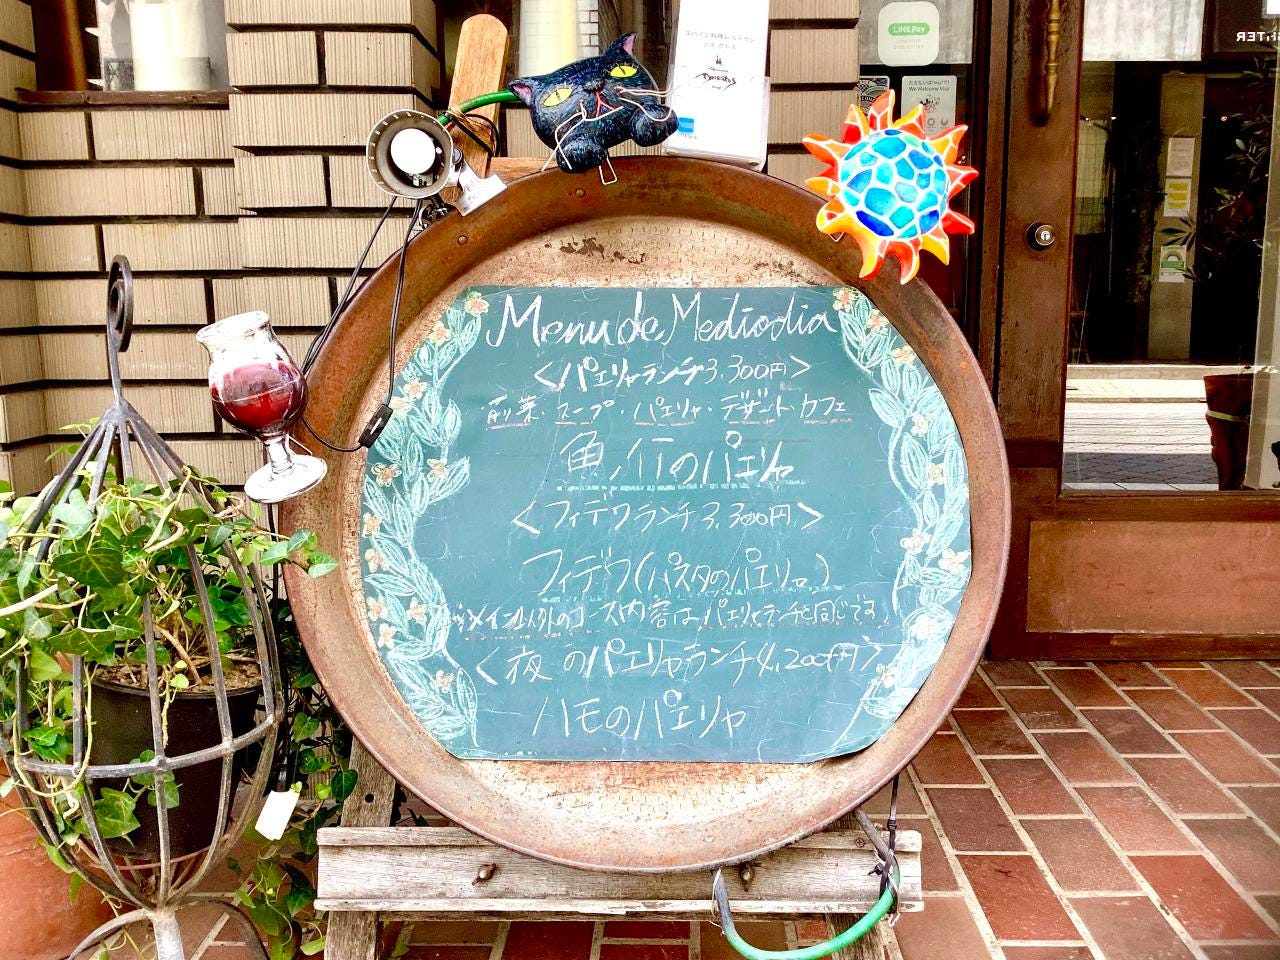 LINE Pay
スペイン料理レストラン
We Welcome Visa
Menu de Mediodia
<パエリャランチ3.300円>
前菜・スープ・パエリャ・デザート・カフェ
のパエリャ
<フィデワランチ3.300円>
フィデワ(パスタのパエリャ)
メイン以外のコース内容はパエリャランチと同じです
<夜のパエリャランチ4.200円>
ハモのパエリャ